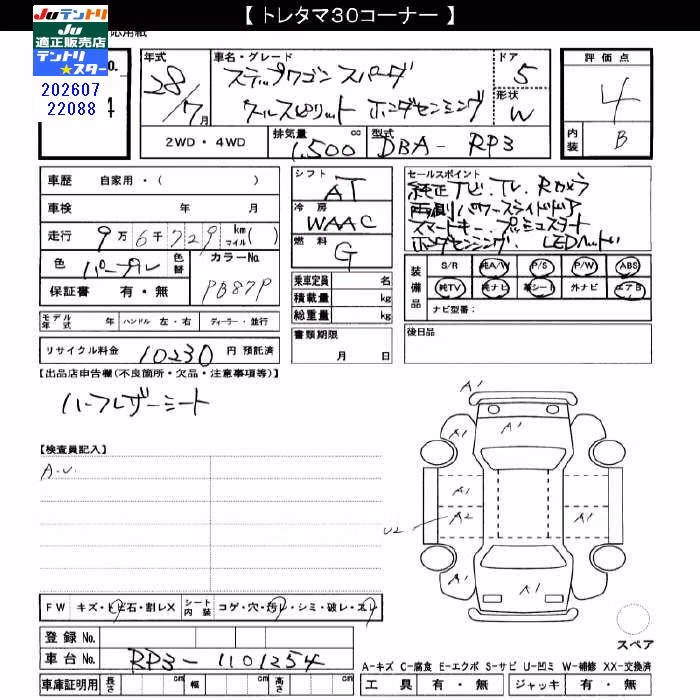 【 トレタマ30コーナー 】
Juテントリ
Ju
適正販売店
テントリ
★スター
202607
22088
応用紙
No.
年式
28/7月
車名・グレード
ステップワゴン スパーダ
クールスピリット ホンダセンシング
ドア
5
形状
W
評価点
4
内装
B
2WD・4WD
排気量
1,500
cc
型式
DBA- RP3
車歴 自家用・( )
車検 年 月
走行 9万6千729 km マイル( )
色 パープル
色替
カラーNo.
PB87P
保証書 有・無
モデル年式 年 ハンドル 左・右 ディーラー・並行
リサイクル料金 10230 円 預託済
シフト
AT
冷房
WAAC
燃料
G
乗車定員 名
積載量 kg
総重量 kg
書類期限
月 日
セールスポイント
純正ナビ、TV、Rカメラ
両側パワースライドドア
スマートキー プッシュスタート
ホンダセンシング LEDヘッドライト
装備品
S/R 純A/W P/S P/W ABS
純TV 純ナビ 革シート 外ナビ エアB
ナビ型番:
後日品
【出品店申告欄(不良箇所・欠品・注意事項等)】
ハーフレザーシート
【検査員記入】
A.U.
A1
A1
A1
A1
A1
A2
A1
U2
A1
A1
A1
スペア
FW キズ・トビ石・割レX シート内装 コゲ・穴・汚レ・シミ・破レ・スレ
登録 No.
車台 No. RP3-1101254
車庫証明用 長さ cm 幅 cm 高さ cm
A-キズ C-腐食 E-エクボ S-サビ U-凹ミ W-補修 XX-交換済
工具 有・無 ジャッキ 有・無